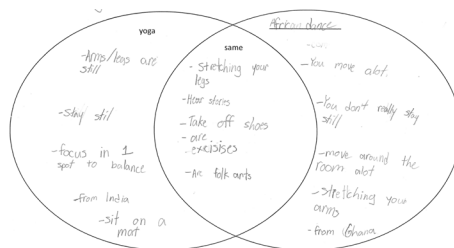 yoga
-Arms/legs are
still
-Stay stil
-focus in 1
spot to balance
-from India
-sit on a
mat
same
-Stretching your
legs
-Hear stories
-Take off shoes
-are
-excisises
-Are folk arts
African dance
-You move alot.
-You don't really stay
still
-move around the
room alot
-stretching your
arms
-from Ghana